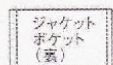 ジャケット
ポケット
(裏)